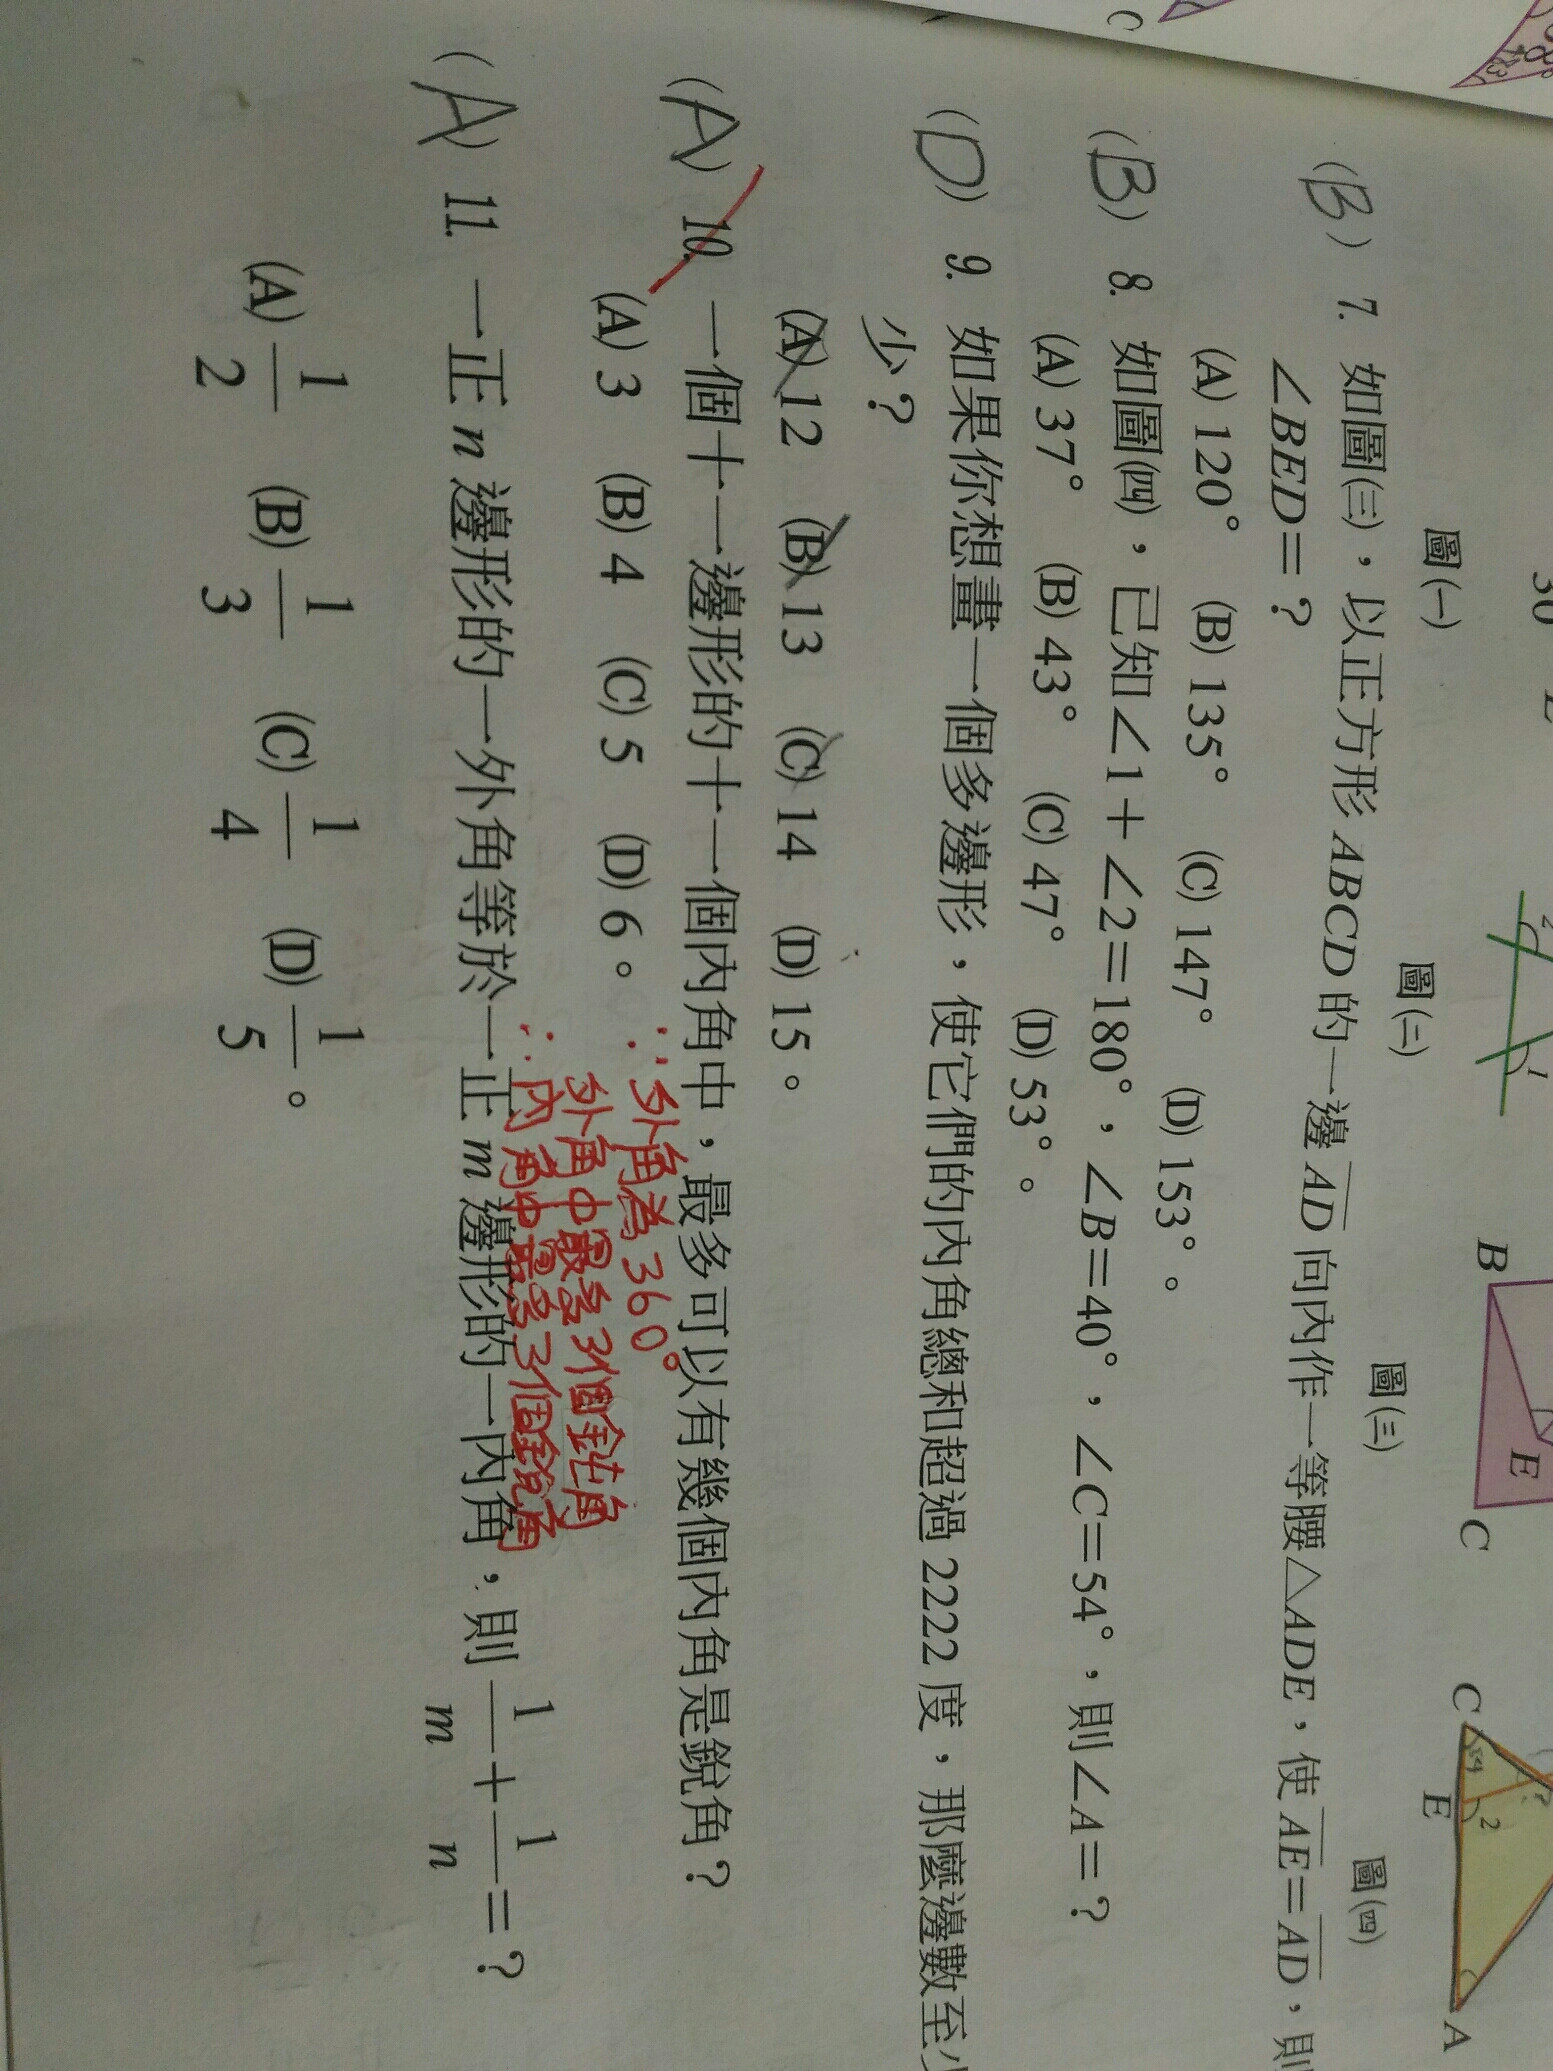 C
30
2
1
B
E
C
C
54
2
E
A
圖㈠
圖㈡
圖㈢
圖㈣
(B) 7. 如圖㈢，以正方形 ABCD 的一邊 AD 向內作一等腰△ADE，使 AE=AD，則
∠BED=？
(A) 120° (B) 135° (C) 147° (D) 153°。
(B) 8. 如圖㈣，已知∠1+∠2=180°，∠B=40°，∠C=54°，則∠A=？
(A) 37° (B) 43° (C) 47° (D) 53°。
(D) 9. 如果你想畫一個多邊形，使它們的內角總和超過 2222 度，那麼邊數至少
少？
(A) 12 (B) 13 (C) 14 (D) 15。
(A) 10. 一個十一邊形的十一個內角中，最多可以有幾個內角是銳角？
(A) 3 (B) 4 (C) 5 (D) 6。
∵外角為360°
外角中最多3個鈍角
∴內角中最多3個銳角
(A) 11. 一正 n 邊形的一外角等於一正 m 邊形的一內角，則 1/m + 1/n =？
(A) 1/2 (B) 1/3 (C) 1/4 (D) 1/5。